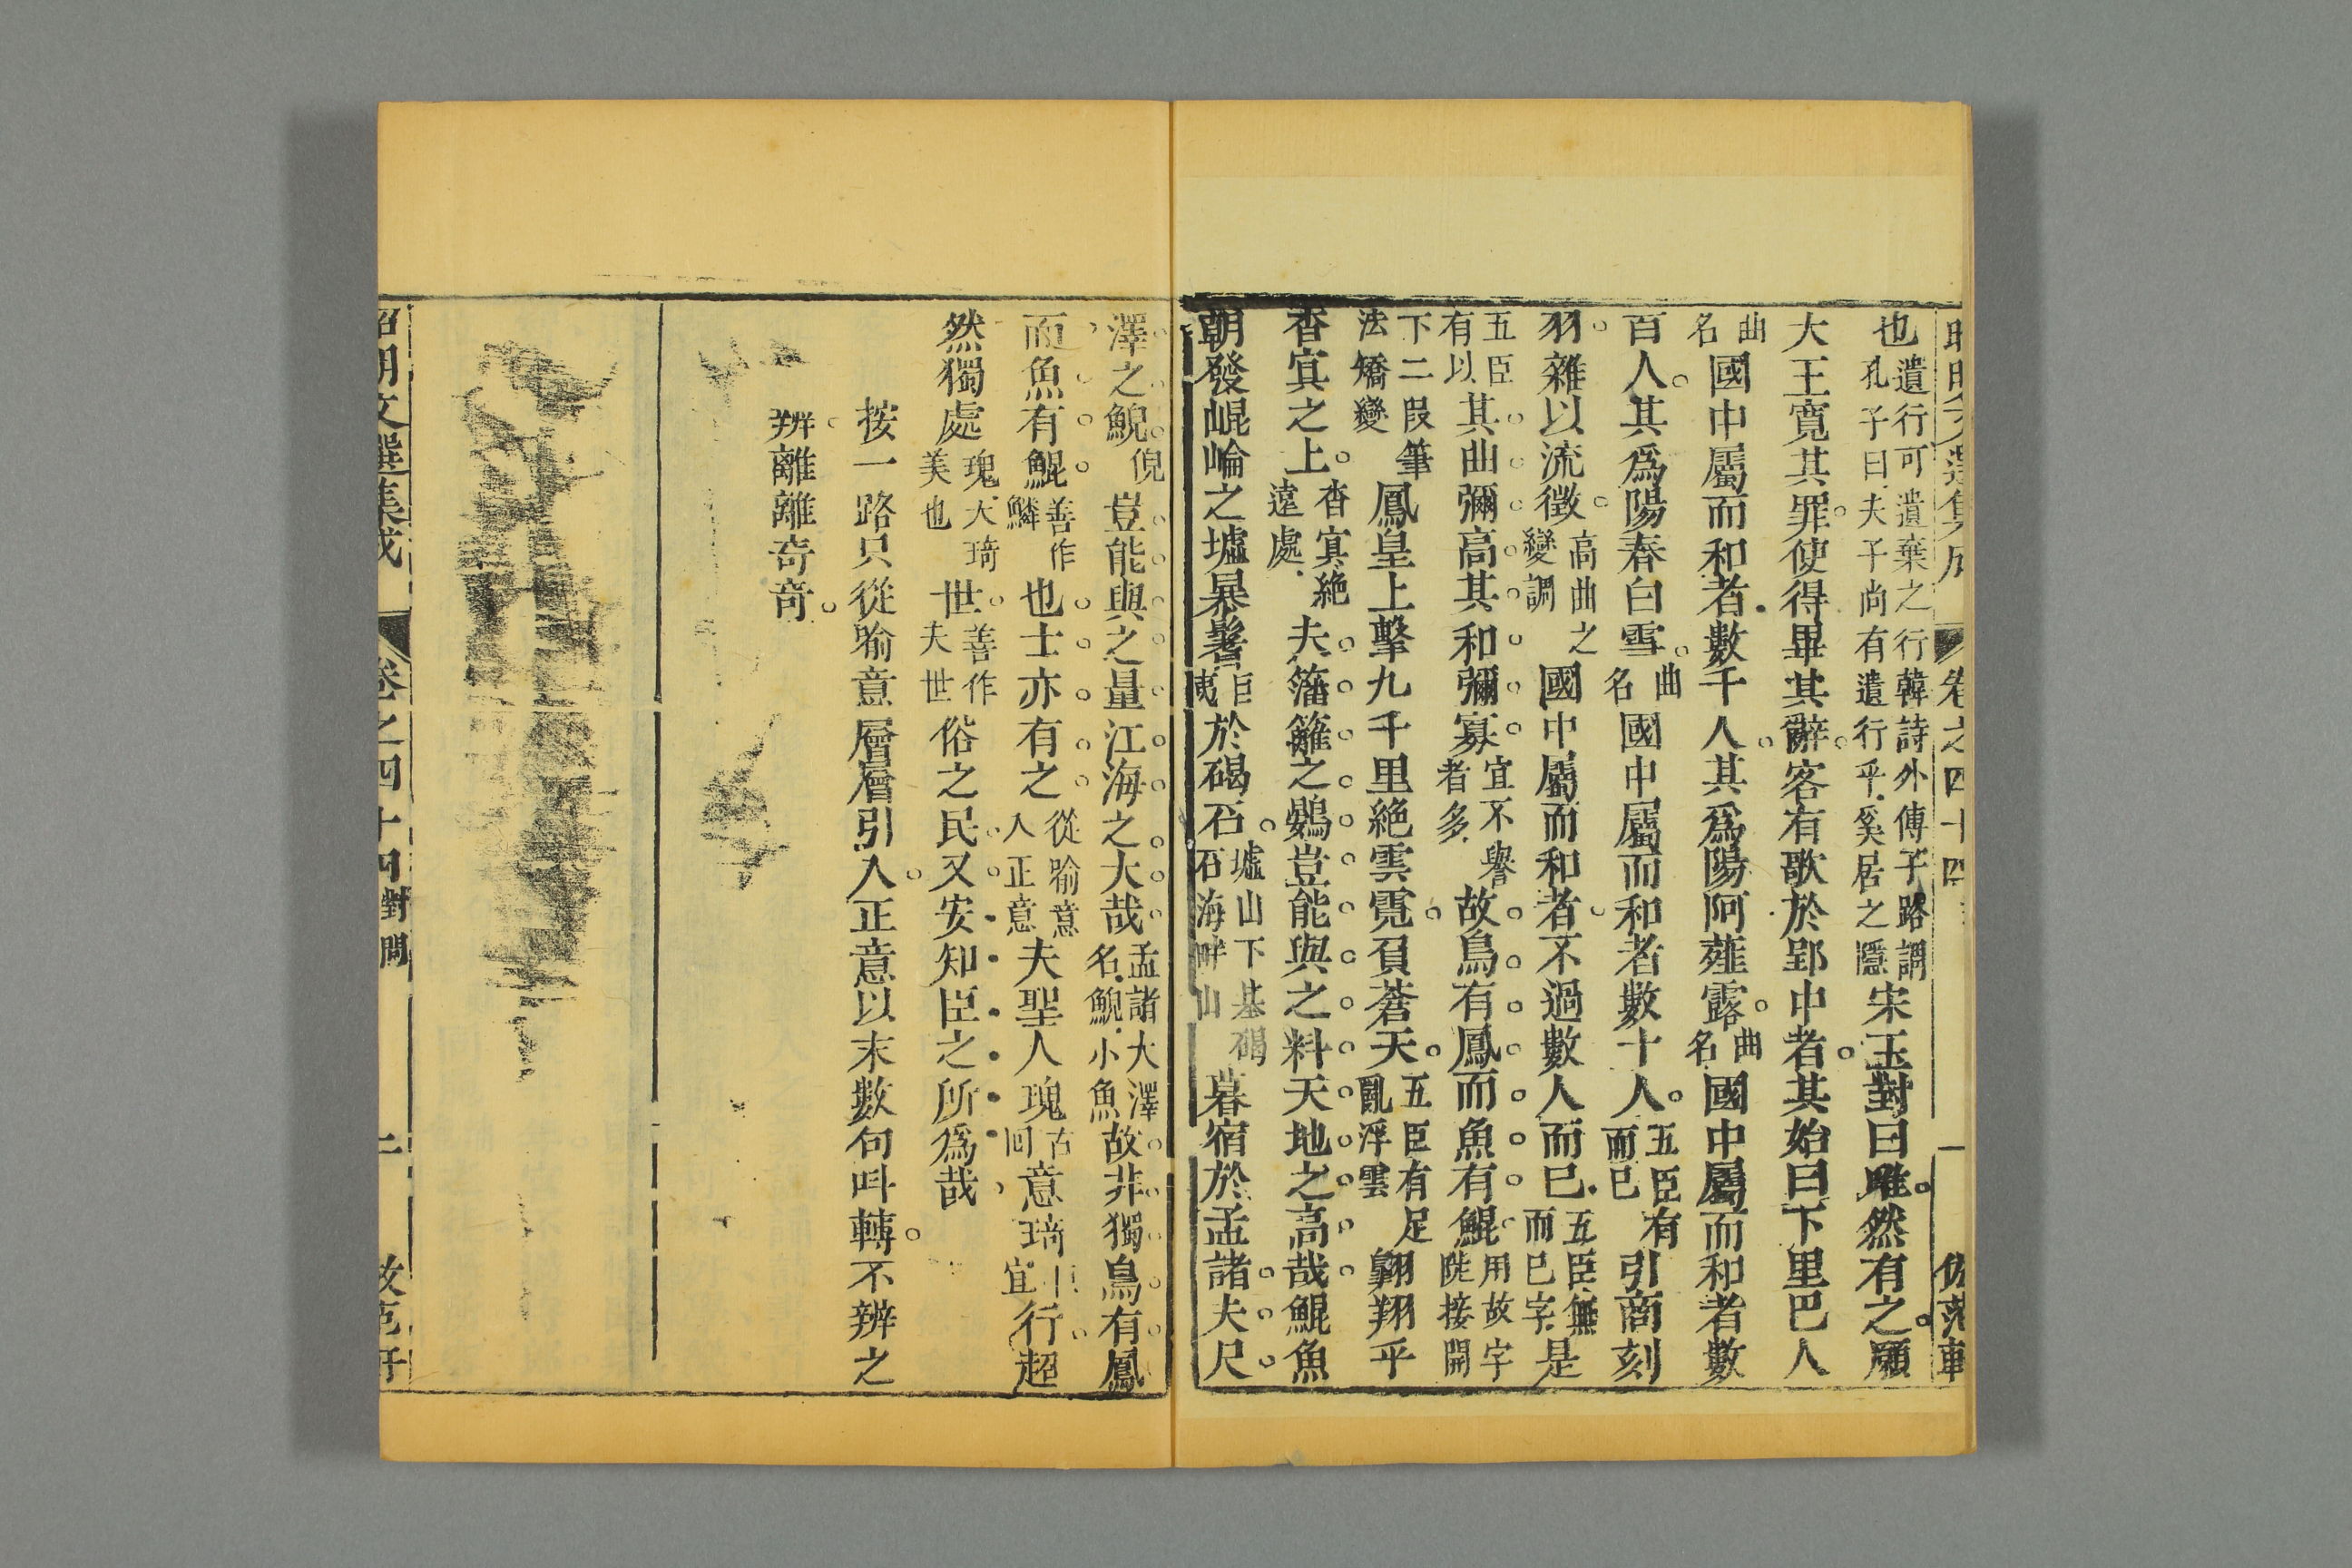 昭明文選集成 卷之四十四 一
也遺行可遺棄之行韓詩外傳子路謂孔子曰夫子尚有遺行乎奚居之隱宋玉對曰唯然有之願
大王寬其罪使得畢其辭客有歌於郢中者其始曰下里巴人
曲名國中屬而和者數千人其爲陽阿薤露曲名國中屬而和者數
百人其爲陽春白雪曲名國中屬而和者數十人五臣有而已引商刻
羽雜以流徵高曲之變調國中屬而和者不過數人而已五臣無而已字是
五臣有以其曲彌高其和彌寡宜不譽者多故鳥有鳳而魚有鯤用故字陡接開
下二叚筆法矯變鳳皇上擊九千里絕雲霓負蒼天五臣有足亂浮雲翱翔乎
杳㝠之上杳㝠絕遠處夫籓籬之鷃豈能與之料天地之高哉鯤魚
朝發崐崘之墟暴鬐巨夷於碣石墟山下基碣石海畔山暮宿於孟諸夫尺
澤之鯢倪豈能與之量江海之大哉孟諸大澤名鯢小魚故非獨鳥有鳳
而魚有鯤善作鱗也士亦有之從喻意入正意夫聖人瑰古回意琦宜行超
然獨處瑰大琦美也世善作夫世俗之民又安知臣之所爲哉
按一路只從喻意層層引入正意以末數句呌轉不辨之
辨離離竒竒
昭明文選集成 卷之四十四對問 二